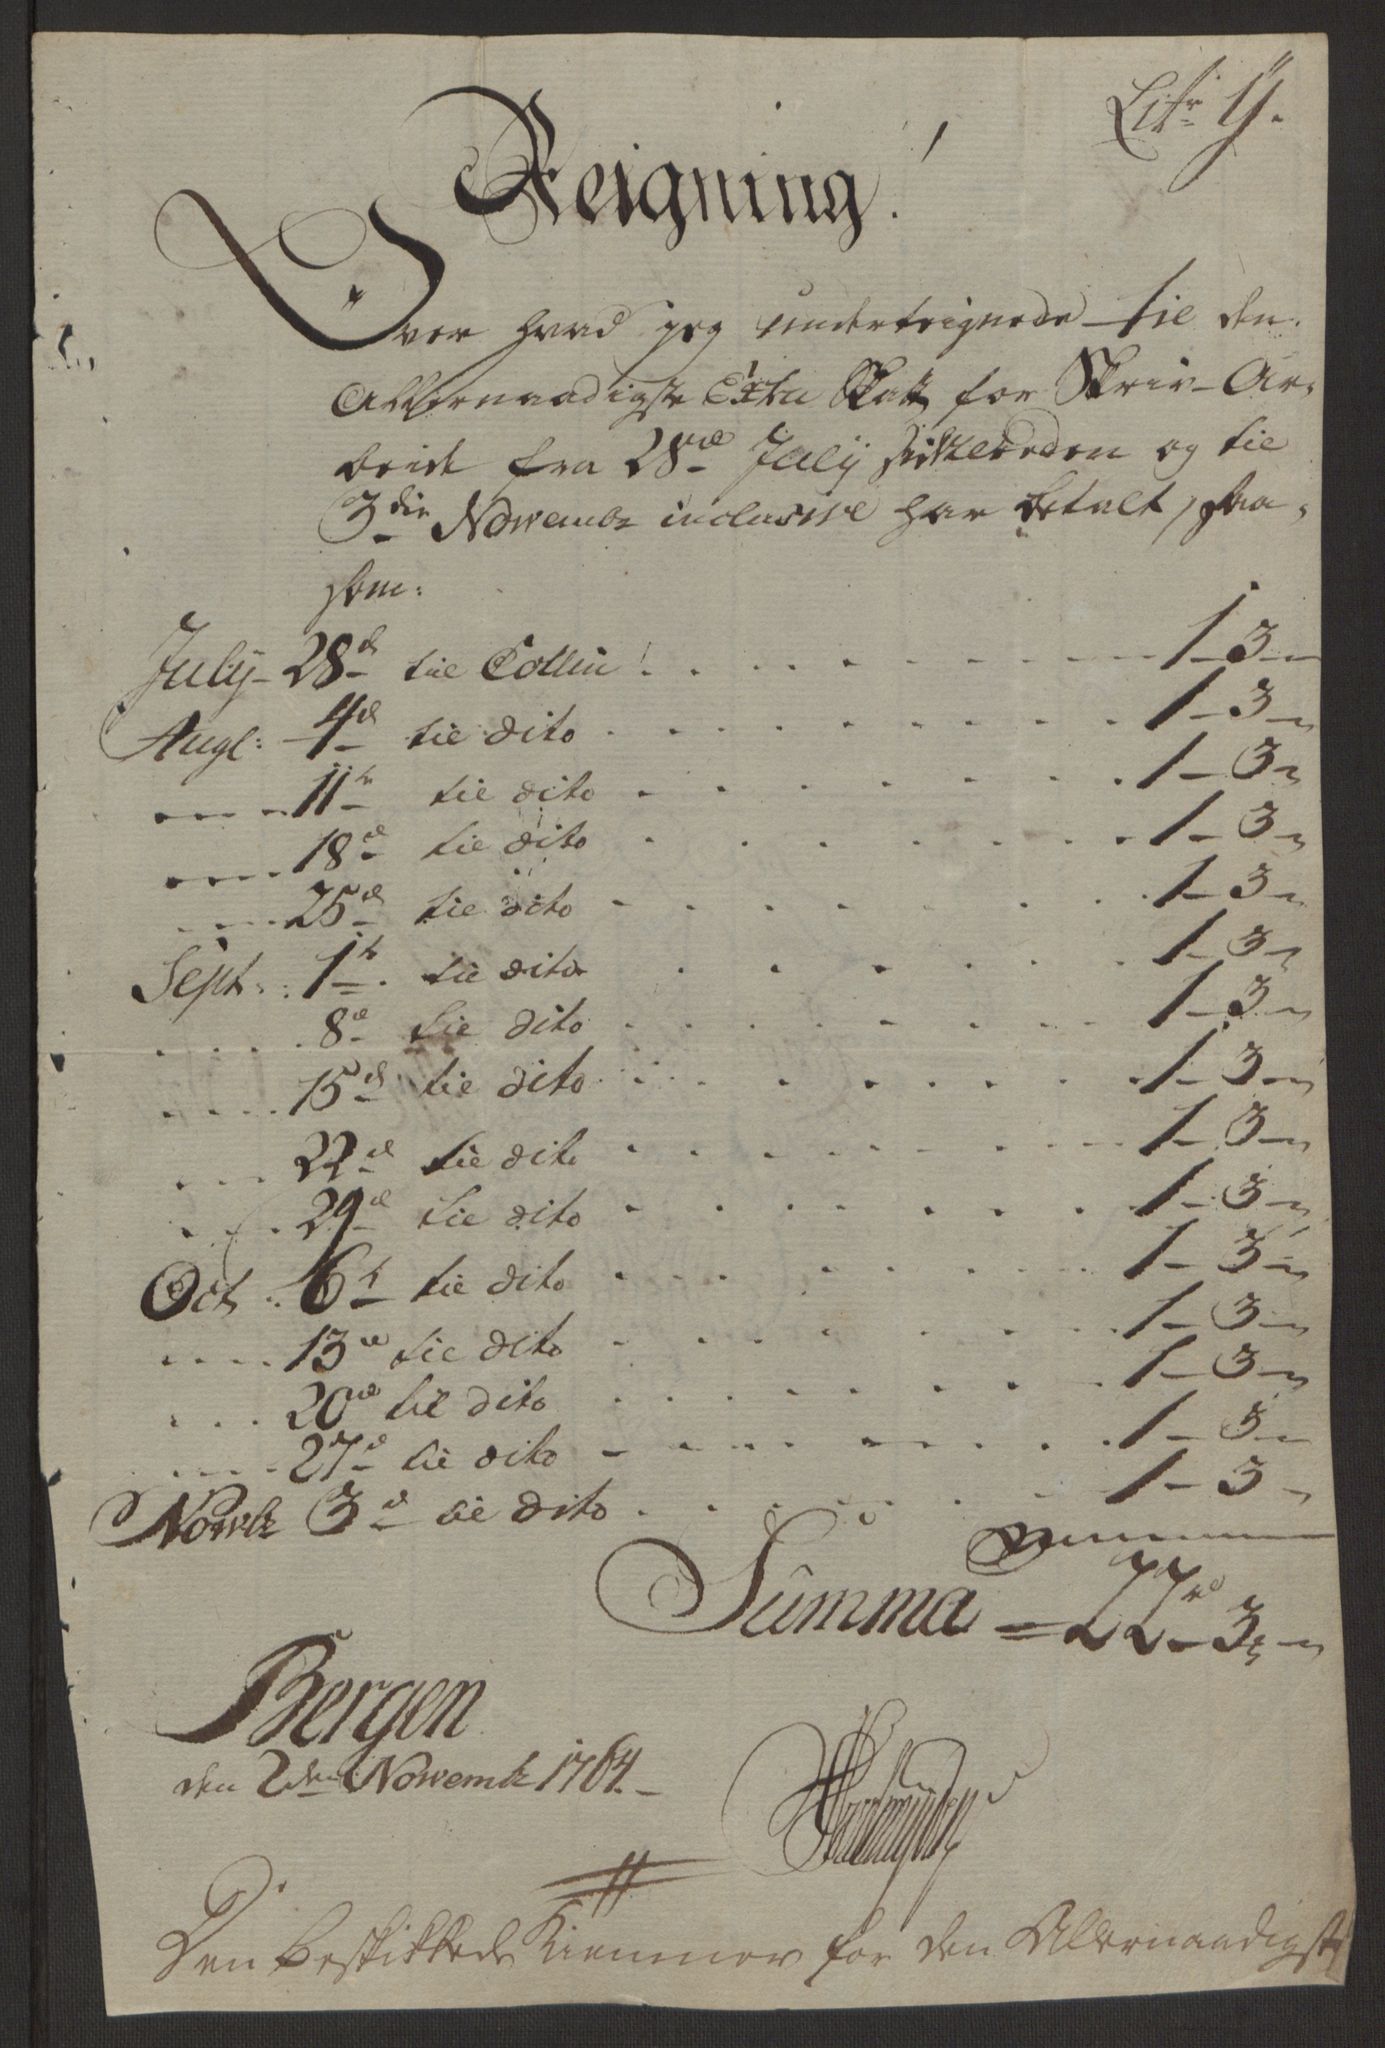 Litr Y.
Reigning!
Over hvad jeg underteignede til den
Allernaadigste Extra Skatt for Skriv-Ar-
beide fra 28de July sidstleeden og til
3die Nowembr inclusive har betalt, saa-
som:
July 28d til Collin 1 - 3 -
Augt: 4d til dito 1 - 3 -
11te til dito 1 - 3 -
18de til dito 1 - 3 -
25d til dito 1 - 3 -
Sept: 1te til dito 1 - 3 -
8de til dito 1 - 3 -
15d til dito 1 - 3 -
22d til dito 1 - 3 -
29de til dito 1 - 3 -
Oct: 6te til dito 1 - 3 -
13de til dito 1 - 3 -
20de til dito 1 - 3 -
27d til dito 1 - 3 -
Nowbr 3d til dito 1 - 3 -
Summa = 22rd - 3 -
Bergen
den 2den Nowembr 1764. -
Den beskikkede Kiemner for den Allernaadigste